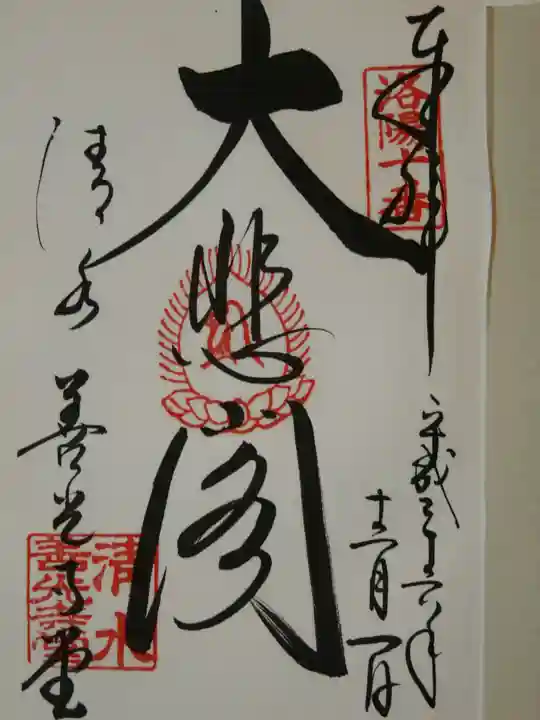 奉拝
洛陽十番
平成二十六年
十二月一日
大悲閣
清水
善光寺堂
清水
善光寺堂